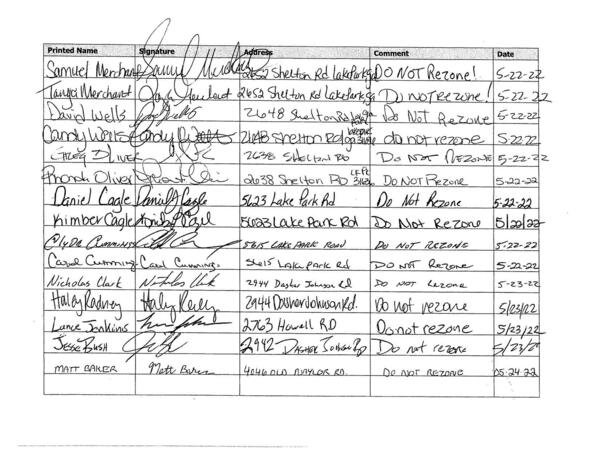 Printed Name Signature Address Comment Date
Samuel Merchant Samuel Merchant 2652 Shelton Rd Lake Park Ga DO NOT Rezone! 5-22-22
Tanya Merchant Tanya Merchant 2652 Shelton Rd Lake Park, Ga Do NOT rezone! 5-22-22
David Wells 2648 Shelton Rd Do Not Rezone 5-22-22
Candy Wells Candy Wells 2648 Shelton Rd do not rezone 5-22-22
Greg Oliver 2638 Shelton RD Do NOT Rezone 5-22-22
Rhonda Oliver 2638 Shelton RD Do Not Rezone 5-22-22
Daniel Cagle Daniel Cagle 5623 Lake Park Rd Do Not Rezone 5-22-22
Kimber Cagle Kimber Cagle 5623 Lake Park Rd Do Not Rezone 5/22/22
Clyde Cummings 5615 LAKE PARK ROAD DO NOT REZONE 5-22-22
Carol Cummings Carol Cummings 5615 Lake Park Rd DO NOT Rezone 5-22-22
Nicholas Clark Nicholas Clark 2944 Dasher Johnson Rd DO NOT rezone 5-23-22
Haley Radney Haley 2944 Dasher Johnson Rd. Do not rezone 5/23/22
Lance Jenkins 2763 Howell RD Do not rezone 5/23/22
Jesse Bush 2942 Dasher Johnson Rd Do not rezone
MATT BAKER Matt Baker 4046 OLD NAYLOR RD. DO NOT REZONE 05-24-22